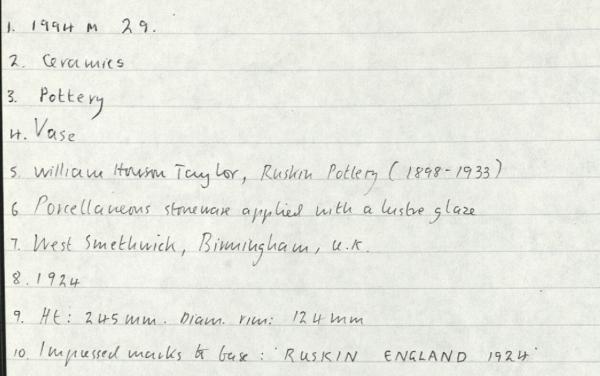 1. 1994 M 29.
2. Ceramics
3. Pottery
4. Vase
5. William Howson Taylor, Ruskin Pottery (1898-1933)
6 Porcellaneous stoneware applied with a lustre glaze
7. West Smethwick, Birmingham, U.K.
8. 1924
9. Ht: 245 mm. Diam. rim: 124 mm
10. Impressed marks to base: 'RUSKIN ENGLAND 1924'